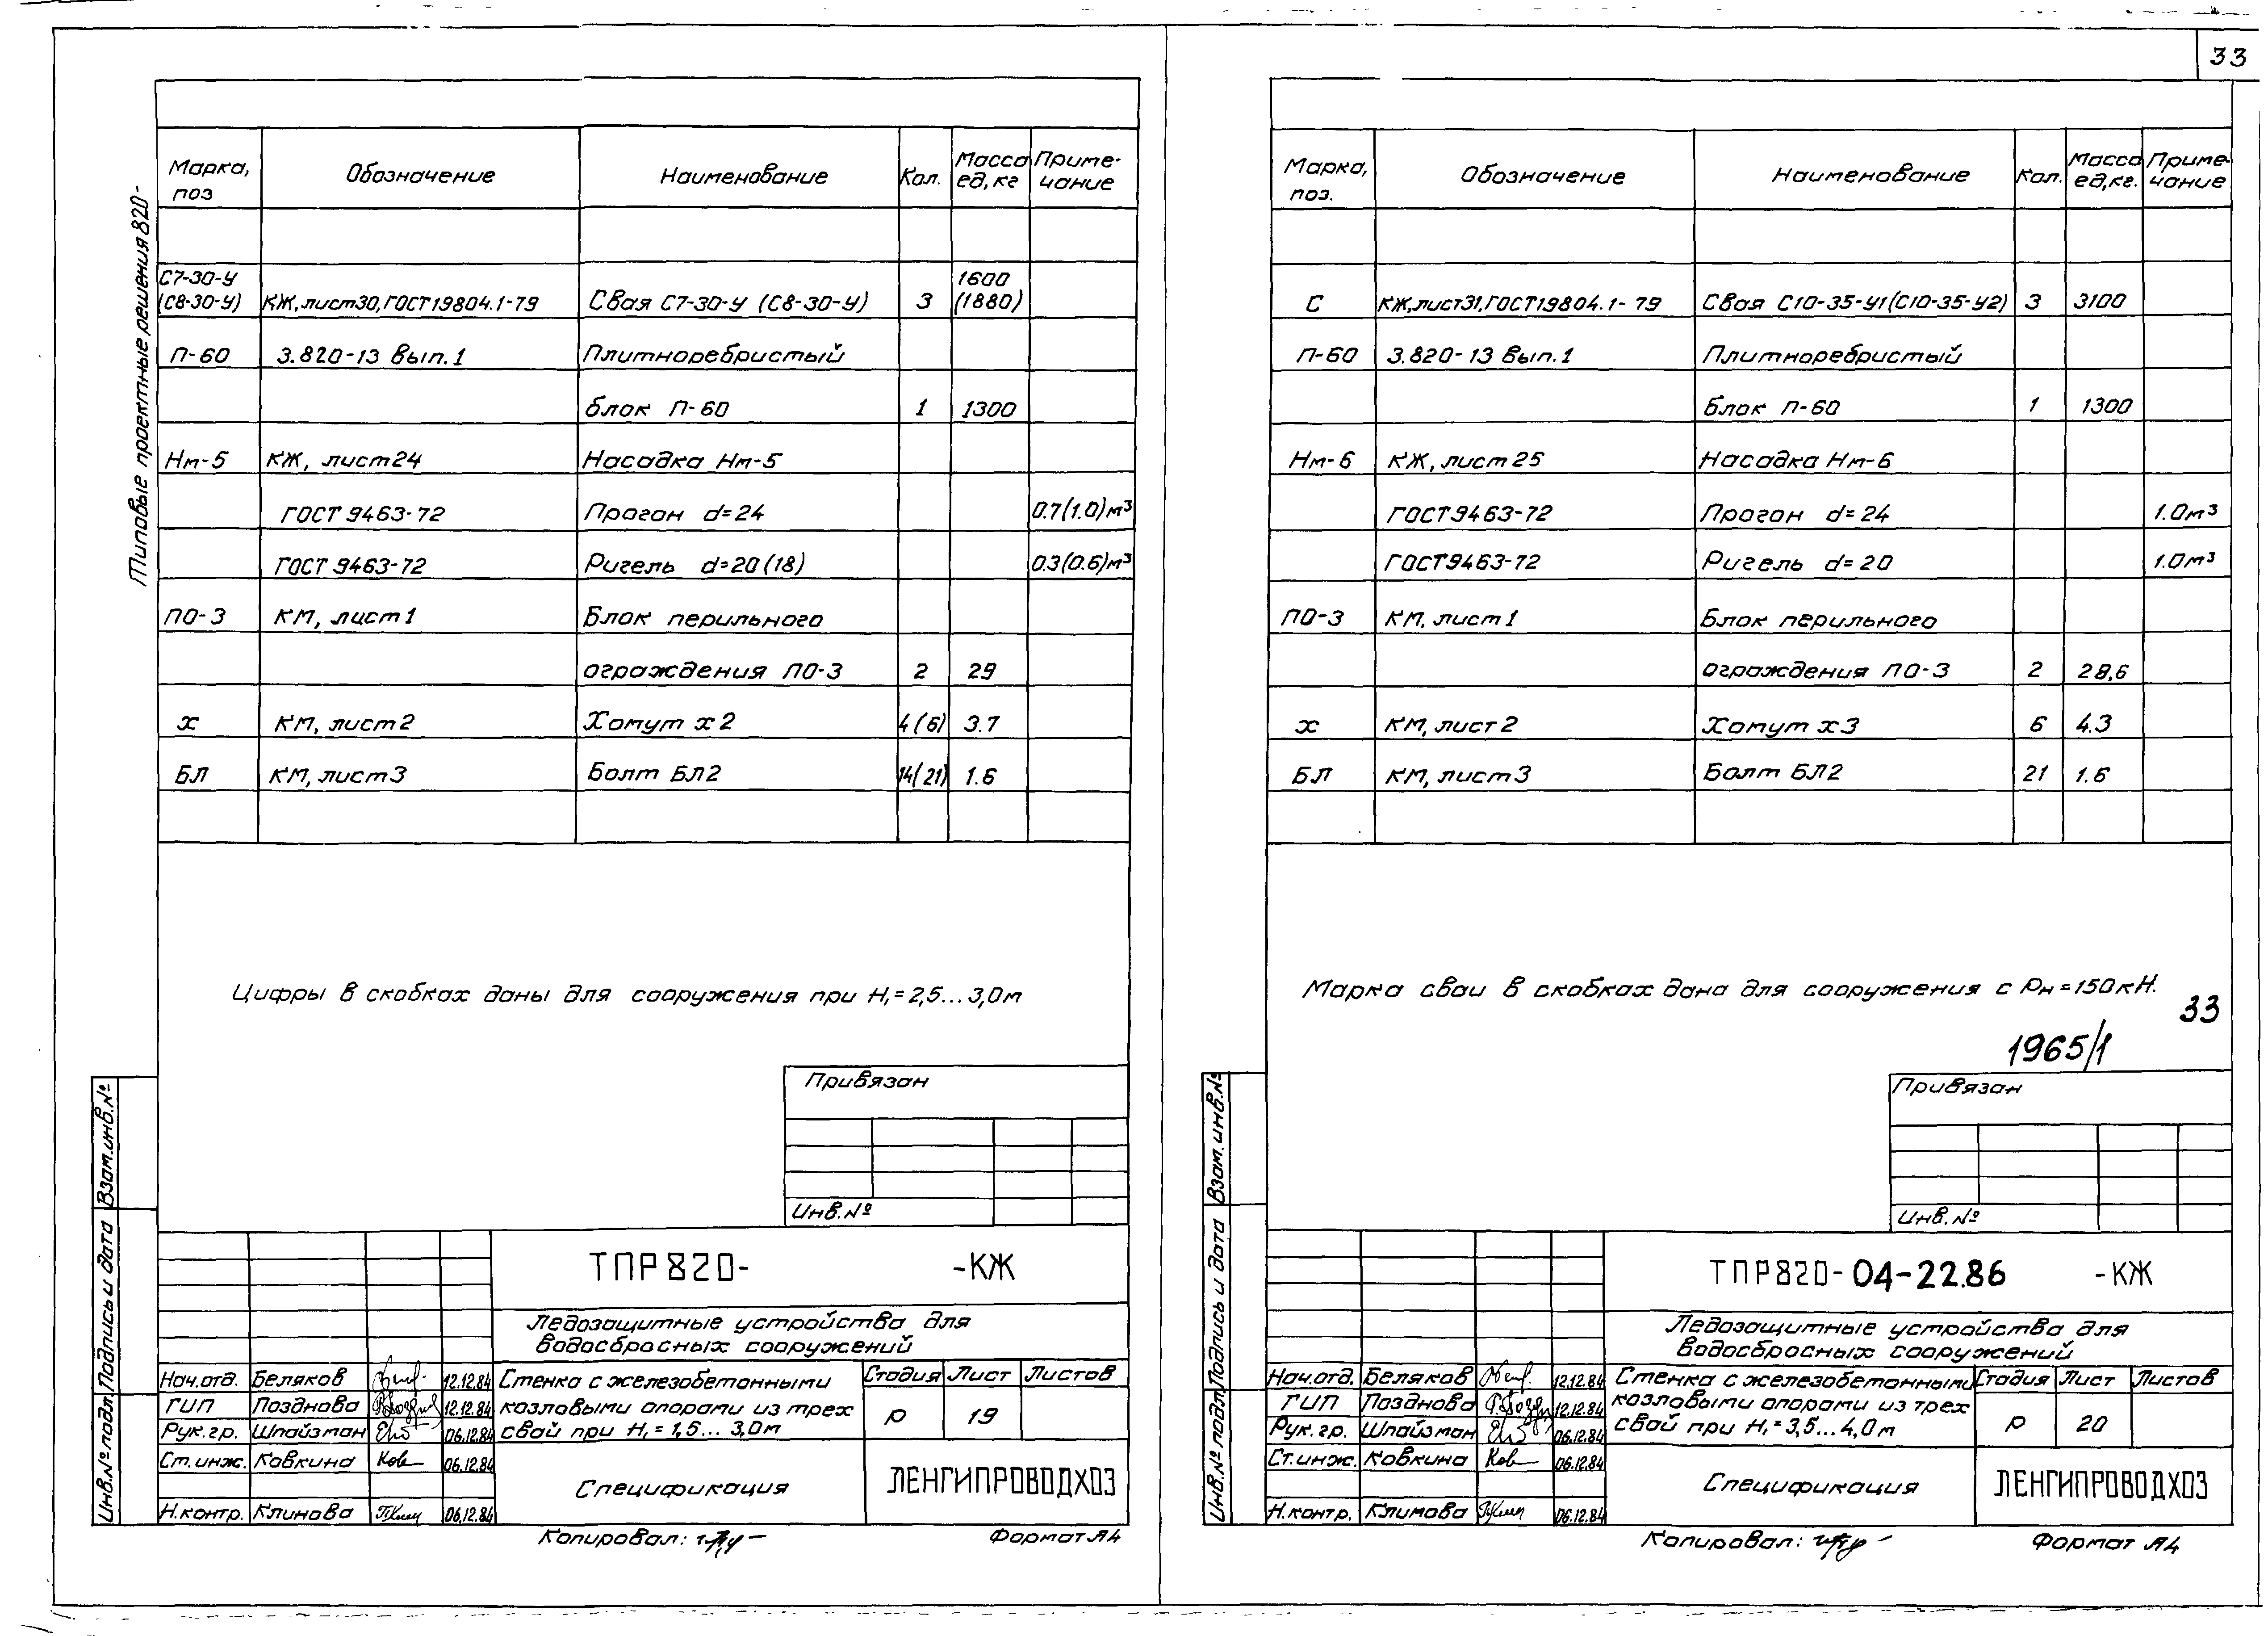 33
Типовые проектные решения 820-
Марка, поз Обозначение Наименование Кол. Масса ед, кг Приме-чание
С7-30-У (С8-30-У) КЖ, лист 30, ГОСТ 19804.1-79 Свая С7-30-У (С8-30-У) 3 1600 (1880)
П-60 3.820-13 Вып. 1 Плитноребристый
блок П-60 1 1300
Нм-5 КЖ, лист 24 Насадка Нм-5
ГОСТ 9463-72 Прогон d=24 0.7(1.0)м³
ГОСТ 9463-72 Ригель d=20(18) 0.3(0.6)м³
ПО-3 КМ, лист 1 Блок перильного
ограждения ПО-3 2 29
х КМ, лист 2 Хомут х2 4(6) 3.7
БЛ КМ, лист 3 Болт БЛ2 14(21) 1.6
Цифры в скобках даны для сооружения при H₁=2,5...3,0м
Привязан
Инв.№
Взам.инв.№
Подпись и дата
Инв.№ подл.
ТПР820- -КЖ
Ледозащитные устройства для
водосбросных сооружений
Нач.отд. Беляков 12.12.84
ГИП Позднова 12.12.84
Рук.гр. Шпайзман 06.12.84
Ст.инж. Ковкина 06.12.84
Н.контр. Климова 06.12.84
Стенка с железобетонными
козловыми опорами из трех
свай при H₁=1,5...3,0м
Стадия Лист Листов
Р 19
Спецификация
ЛЕНГИПРОВОДХОЗ
Копировал:
Формат А4
Марка, поз. Обозначение Наименование Кол. Масса ед, кг. Приме-чание
С КЖ, лист 31, ГОСТ 19804.1-79 Свая С10-35-У1(С10-35-У2) 3 3100
П-60 3.820-13 Вып. 1 Плитноребристый
блок П-60 1 1300
Нм-6 КЖ, лист 25 Насадка Нм-6
ГОСТ 9463-72 Прогон d=24 1.0м³
ГОСТ 9463-72 Ригель d=20 1.0м³
ПО-3 КМ, лист 1 Блок перильного
ограждения ПО-3 2 28,6
х КМ, лист 2 Хомут х3 6 4.3
БЛ КМ, лист 3 Болт БЛ2 21 1.6
Марка сваи в скобках дана для сооружения с Рн=150кН.
33
1965/1
Привязан
Инв.№
Взам.инв.№
Подпись и дата
Инв.№ подл.
ТПР820-04-22.86 -КЖ
Ледозащитные устройства для
водосбросных сооружений
Нач.отд. Беляков 12.12.84
ГИП Позднова 12.12.84
Рук.гр. Шпайзман 06.12.84
Ст.инж. Ковкина 06.12.84
Н.контр. Климова 06.12.84
Стенка с железобетонными
козловыми опорами из трех
свай при H₁=3,5...4,0м
Стадия Лист Листов
Р 20
Спецификация
ЛЕНГИПРОВОДХОЗ
Копировал:
Формат А4